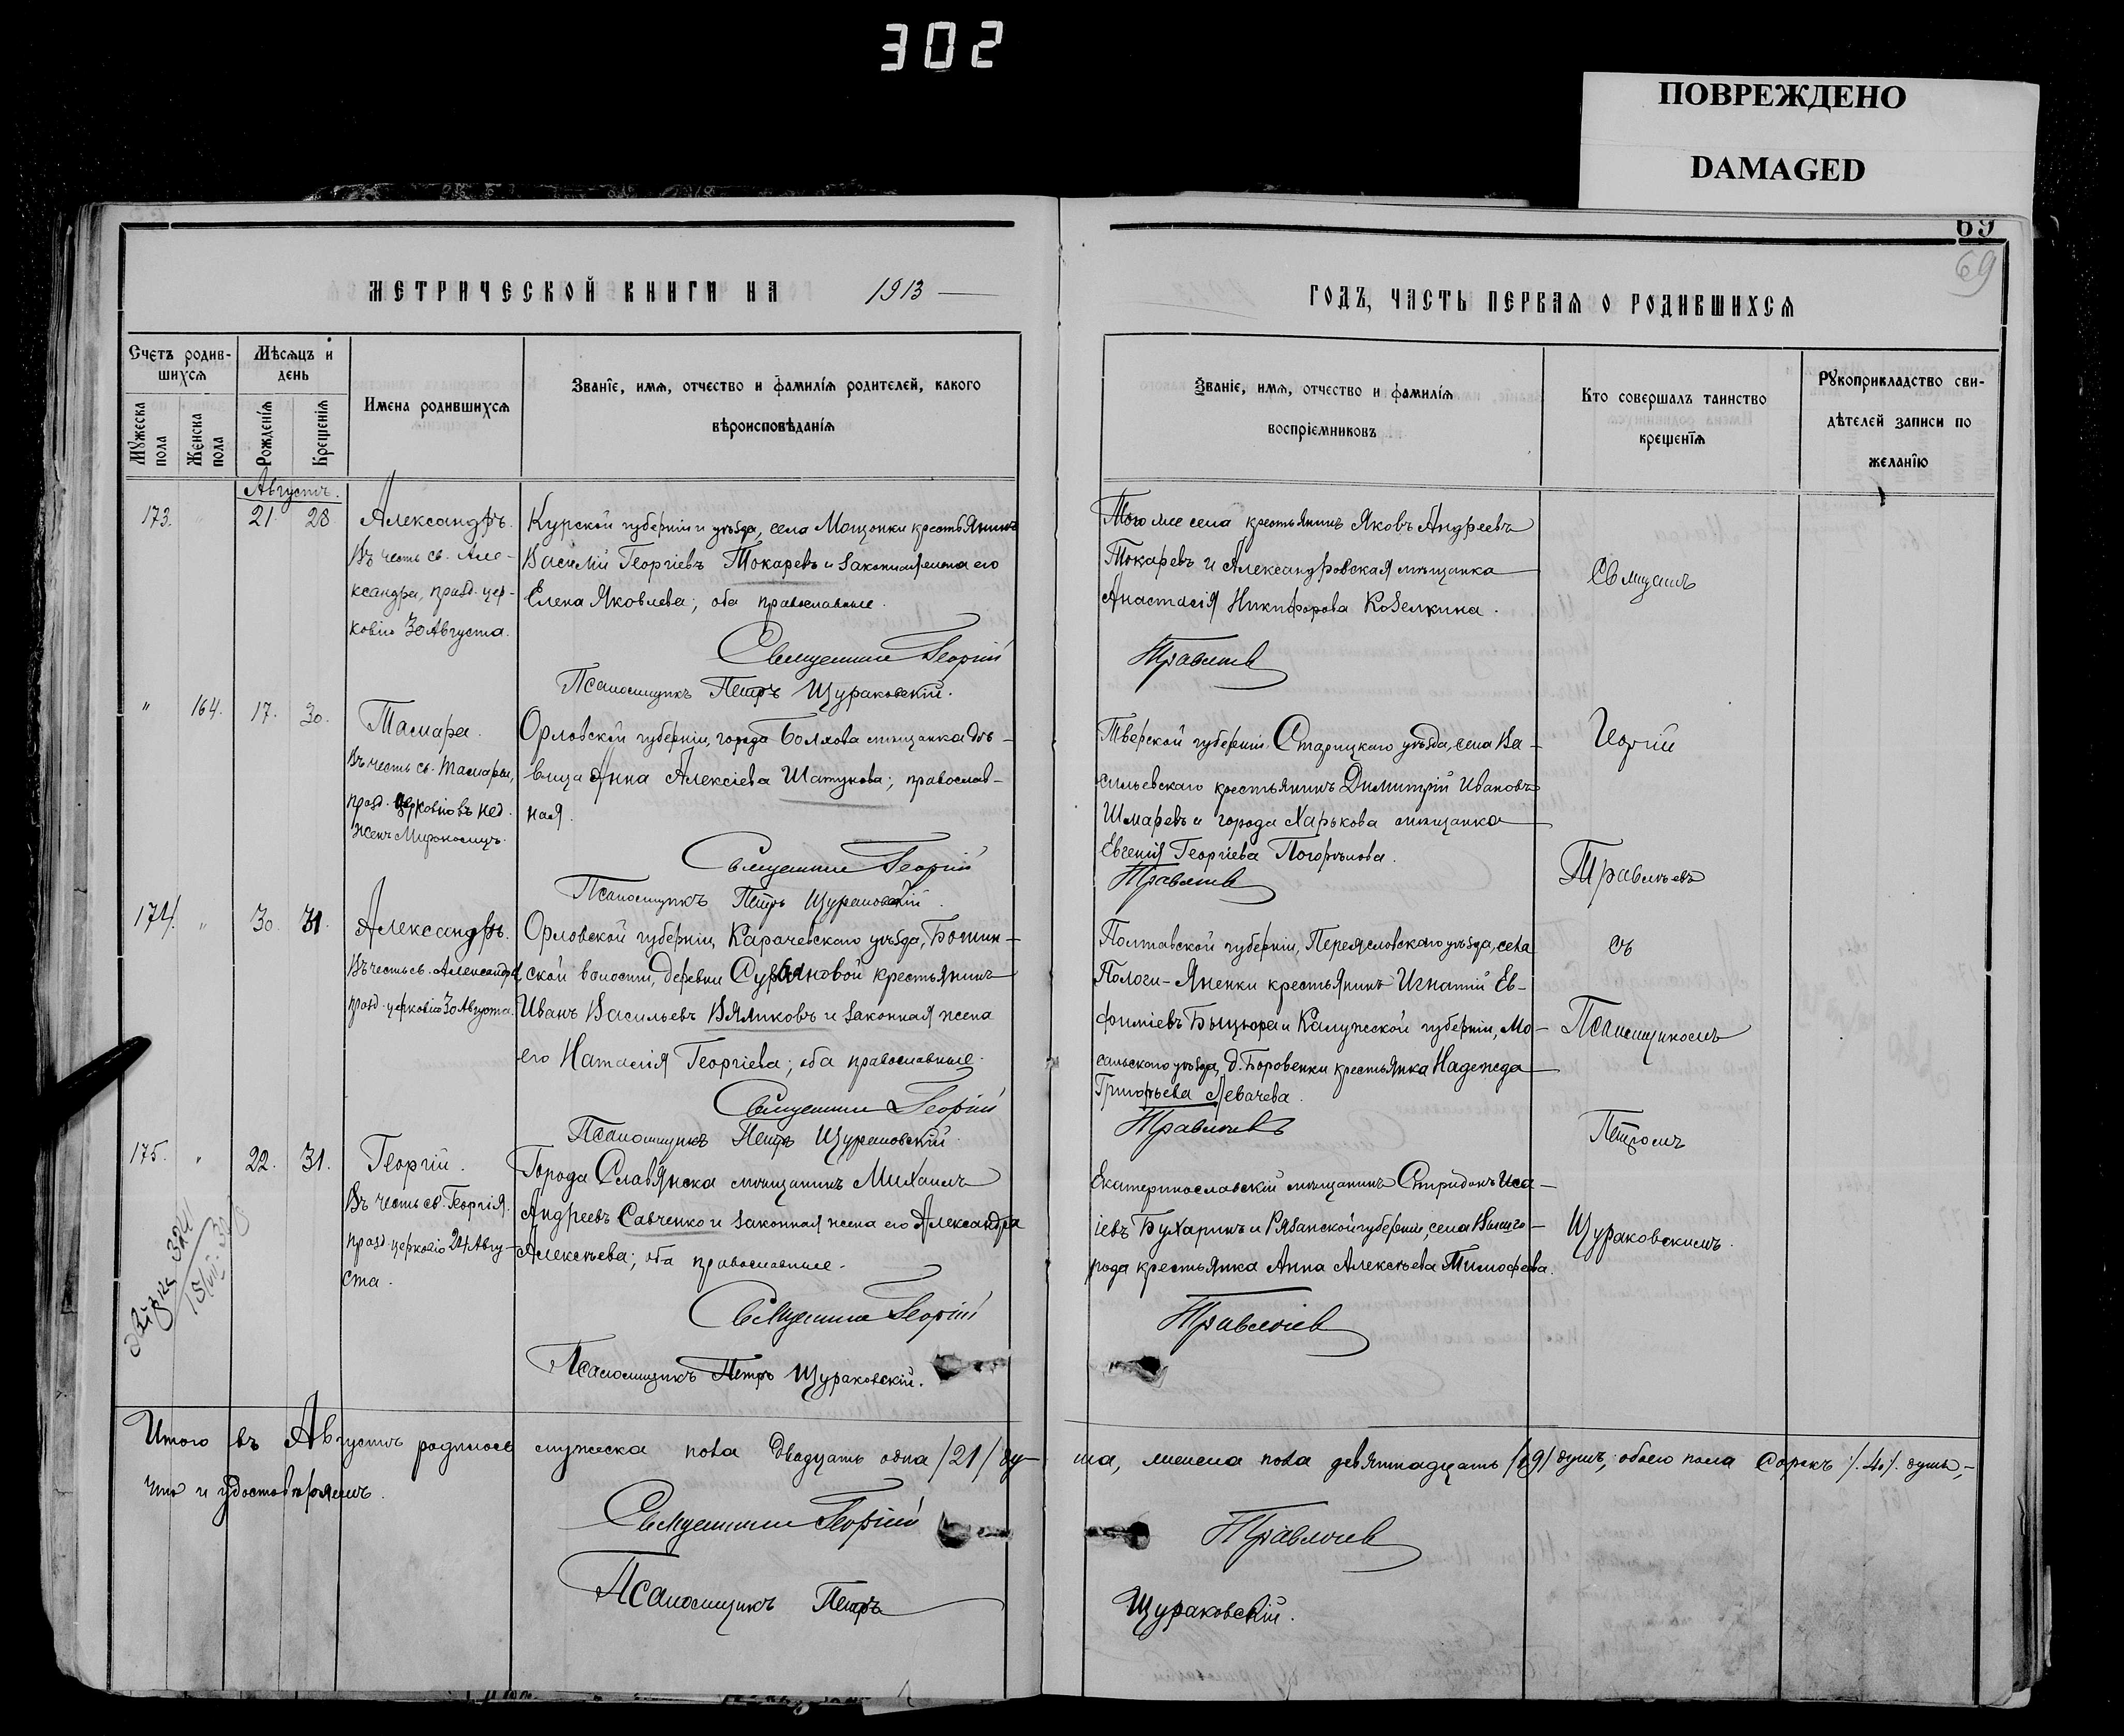 302
ПОВРЕЖДЕНО
DAMAGED
69
69
МЕТРИЧЕСКОЙ КНИГИ НА 1913
ГОДЪ, ЧАСТЬ ПЕРВАЯ О РОДИВШИХСЯ
Счетъ родив-
шихся
Мужеска пола
Женска пола
Мѣсяцъ и
день
Рожденія
Крещенія
Имена родившихся
Званіе, имя, отчество и фамилія родителей, какого
вѣроисповѣданія
Званіе, имя, отчество и фамилія
воспріемниковъ
Кто совершалъ таинство
крещенія
Рукоприкладство сви-
дѣтелей записи по
желанію
Августъ.
173. " 21. 28
Александръ.
Въ честь св. Але-
ксандра, празд. цер-
ковію 30 Августа.
Курской губерніи и уѣзда, села Мощонки крестьянинъ
Василій Георгіевъ Токаревъ и законная жена его
Елена Яковлева; оба православные.
Священникъ Георгій
Псаломщикъ Петръ Щураковскій.
Того же села крестьянинъ Яковъ Андреевъ
Токаревъ и Александровская мѣщанка
Анастасія Никифорова Козелкина.
Правлочев
" 164. 17. 30.
Тамара.
Въ честь св. Тамары,
празд. церковію въ нед.
Женъ Мироносицъ.
Орловской губерніи, города Болхова мѣщанка дѣ-
вица Анна Алексіева Шатунова; православ-
ная.
Священникъ Георгій
Псаломщикъ Петръ Щураковскій.
Тверской губерніи, Старицкаго уѣзда, села Ва-
сильевскаго крестьянинъ Димитрій Ивановъ
Шмаревъ и города Харькова мѣщанка
Евгенія Георгіева Погорѣлова.
174. " 30. 31.
Александръ.
Въ честь св. Александра
празд. церковію 30 Августа.
Орловской губерніи, Карачевскаго уѣзда,
ской волости, деревни крестьянинъ
Иванъ Васильевъ Вяликовъ и законная жена
его Наталія Георгіева; оба православные.
Священникъ Георгій
Псаломщикъ Петръ Щураковскій.
Полтавской губерніи, Переясловскаго уѣзда, села
Пологи-Яненки крестьянинъ Игнатій Ев-
фиміевъ и Калужской губерніи, Мо-
сальскаго уѣзда, д. Боровенки крестьянка Надежда
Григорьева Левачева.
175. " 22. 31.
Георгій.
Въ честь св. Георгія.
празд. церковію 24 Авгу-
ста.
Города Славянска мѣщанинъ Михаилъ
Андреевъ Савченко и законная жена его Александра
Алексѣева; оба православные.
Священникъ Георгій
Псаломщикъ Петръ Щураковскій.
Екатеринославскій мѣщанинъ Спиридонъ Иса-
іевъ Бухаринъ и Рязанской губерніи, села Вышго-
рода крестьянка Анна Алексѣева Тимофеева.
Священ
Георгій
съ
Псаломщикомъ
Петромъ
Щураковскимъ.
Итого въ Августѣ родилось мужеска пола двадцать одна /21/ ду-
ша, женска пола девятнадцать /19/ душъ, обоего пола сорокъ /40/ душъ,
что и удостовѣряемъ.
Священникъ Георгій
Псаломщикъ Петръ
Щураковскій.